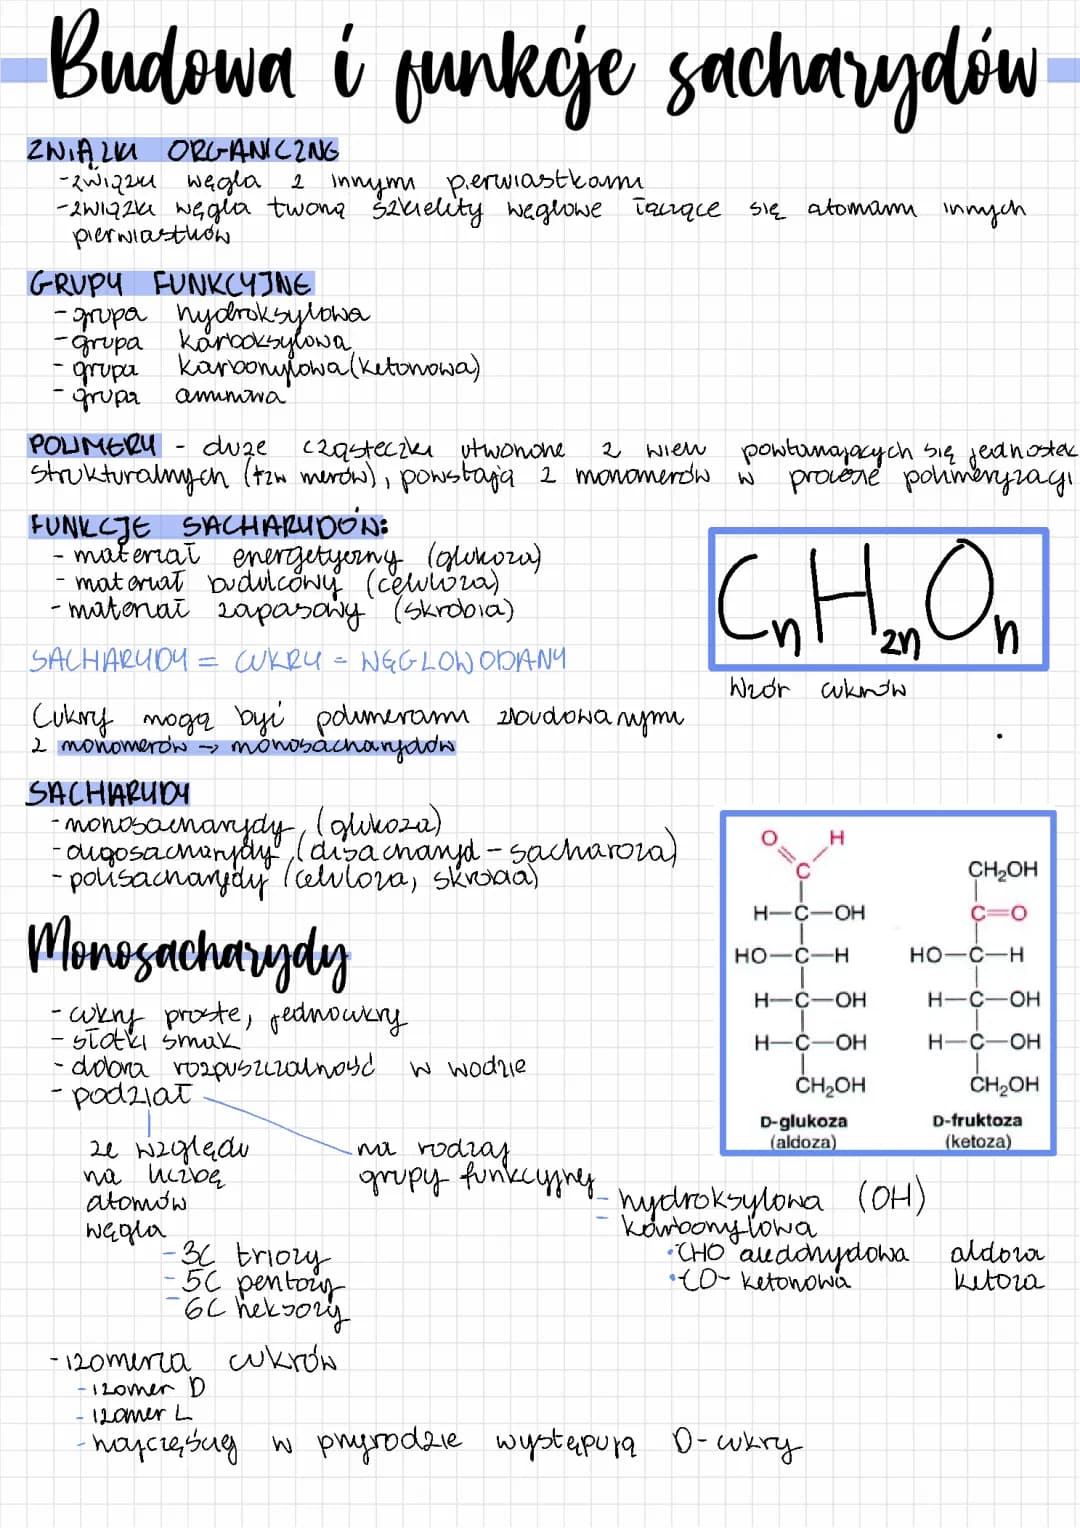 Budowa i funkcje sacharydów
ZWIĄZKI ORGANICZNE
-związki węgla z innymi pierwiastkami
-związki węgla tworzą szkielety węglowe łączące się atomami innych
pierwiastków
GRUPY FUNKCYJNE
- grupa hydroksylowa
- grupa karboksylowa
- grupa karbonylowa (ketonowa)
- grupa aminowa
POLIMERY - duże cząsteczki utworzone z wielu powtarzających się jednostek
strukturalnych (tzw merów), powstają z monomerów w procesie polimeryzacji
FUNKCJE SACHARYDÓW:
- materiał energetyczny (glukoza)
- materiał budulcowy (celuloza)
- materiał zapasowy (skrobia)
CnH2nOn
Wzór cukrów
SACHARYDY = CUKRY = WĘGLOWODANY
Cukry mogą być polimerami zbudowanymi
z monomerów → monosacharydów
SACHARYDY
- monosacharydy (glukoza)
- oligosacharydy (disacharyd - sacharoza)
- polisacharydy (celuloza, skrobia)
O H
C
H—C—OH
HO—C—H
H—C—OH
H—C—OH
CH₂OH
D-glukoza
(aldoza)
CH₂OH
C=O
HO—C—H
H—C—OH
H—C—OH
CH₂OH
D-fruktoza
(ketoza)
Monosacharydy
- cukry proste, jednocukry
- słodki smak
- dobra rozpuszczalność w wodzie
- podział
ze względu
na liczbę
atomów
węgla
- 3C triozy
- 5C pentozy
- 6C heksozy
na rodzaj
grupy funkcyjnej
- hydroksylowa (OH)
- karbonylowa
•CHO aldehydowa aldoza
•CO- ketonowa ketoza
- izomeria cukrów
- izomer D
- izomer L
- najczęściej w przyrodzie występują D-cukry